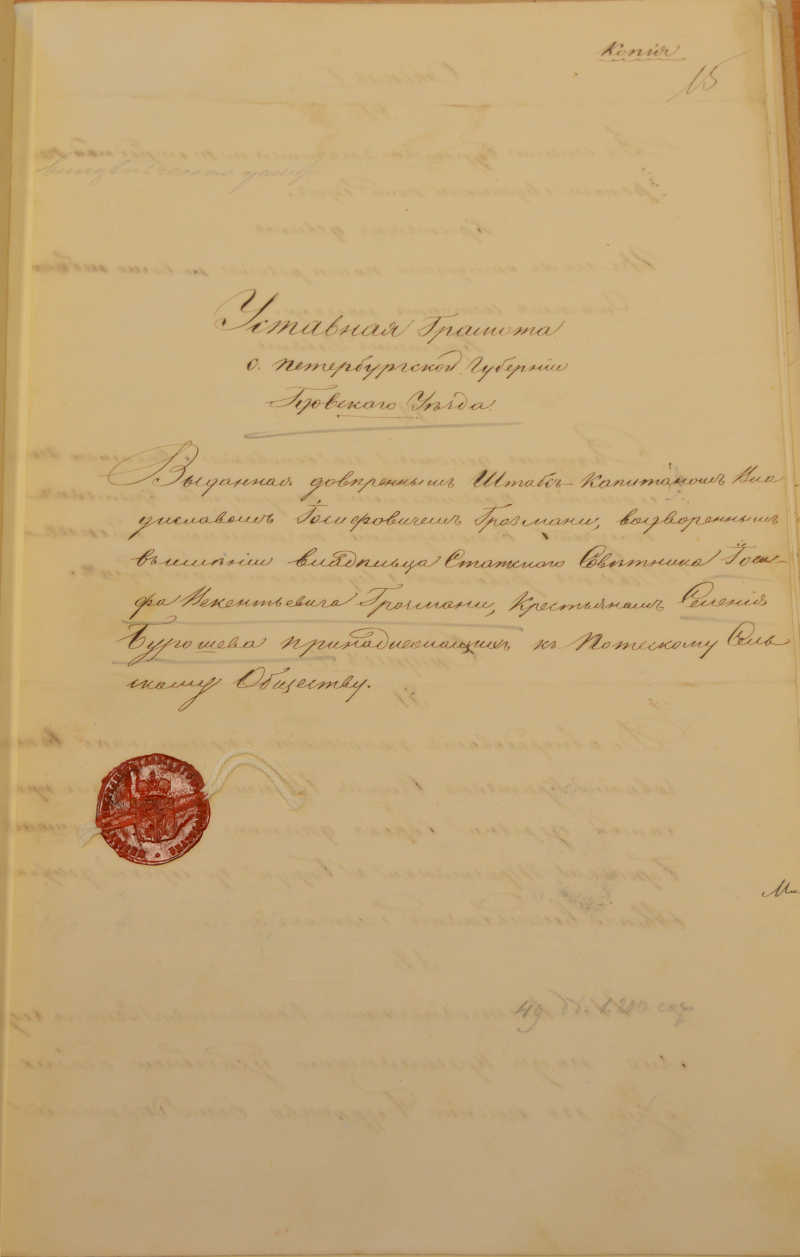 Копія
15
Уставная Грамота
С. Петербургской Губерніи
Гдовского Уѣзда.
Выданная довѣреннымъ Штабсъ-Капитаномъ Вла
диславомъ Іосифовичемъ Грогмани, водвореннымъ
въ имѣніи владѣльца Статского Совѣтника Іоси-
фа Викентьевича Грогмани, Крестьянамъ Селенія
Бурошева принадлежащимъ къ Потескому Сель
скому Обществу.
49